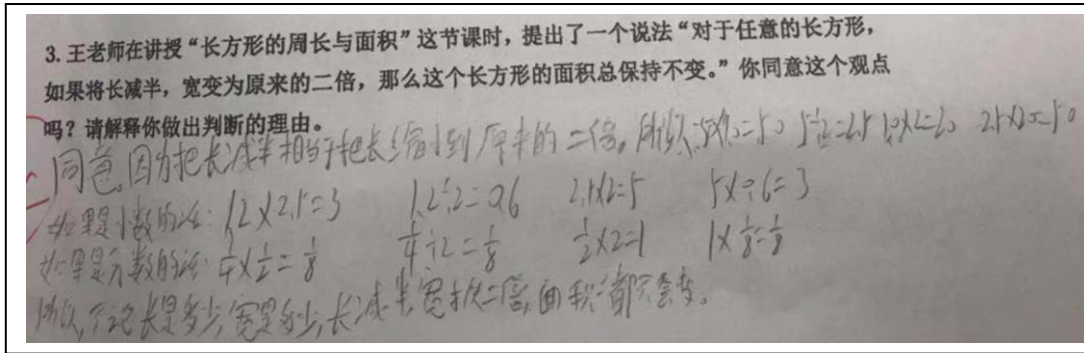 3. 王老师在讲授“长方形的周长与面积”这节课时，提出了一个说法“对于任意的长方形，
如果将长减半，宽变为原来的二倍，那么这个长方形的面积总保持不变。”你同意这个观点
吗？请解释你做出判断的理由。
同意，因为把长减半相当于把长缩小到原来的二倍，所以5×10=50 5÷2=2.5 10×2=20 2.5×20=50
如果是小数的话：1.2×2.5=3 1.2÷2=0.6 2.5×2=5 5×0.6=3
如果是分数的话：1/4×1/2=1/8 1/4÷2=1/8 1/2×2=1 1×1/8=1/8
所以，不论长是多少，宽是多少，长减半，宽扩大二倍，面积都不会变。